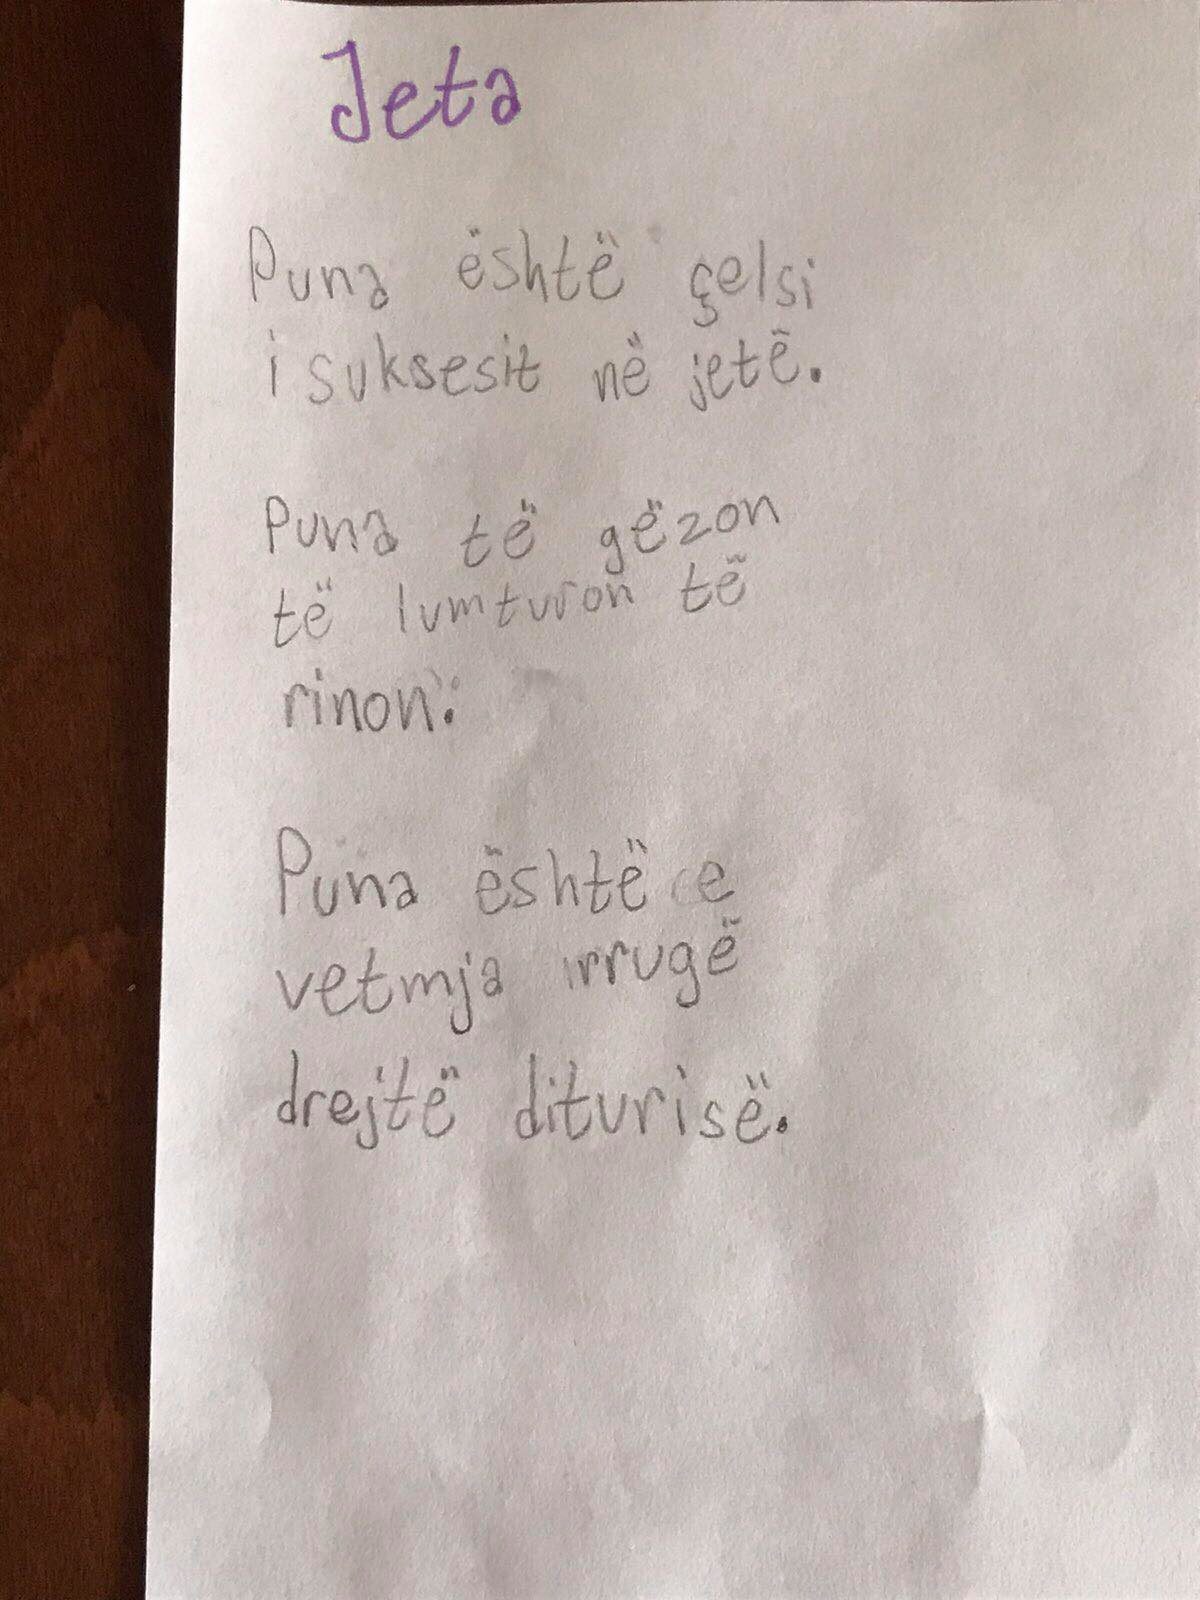 Jeta
Puna është çelsi
i suksesit në jetë.
Puna të gëzon
të lumturon të
rinon.
Puna është e
vetmja rrugë
drejtë diturisë.